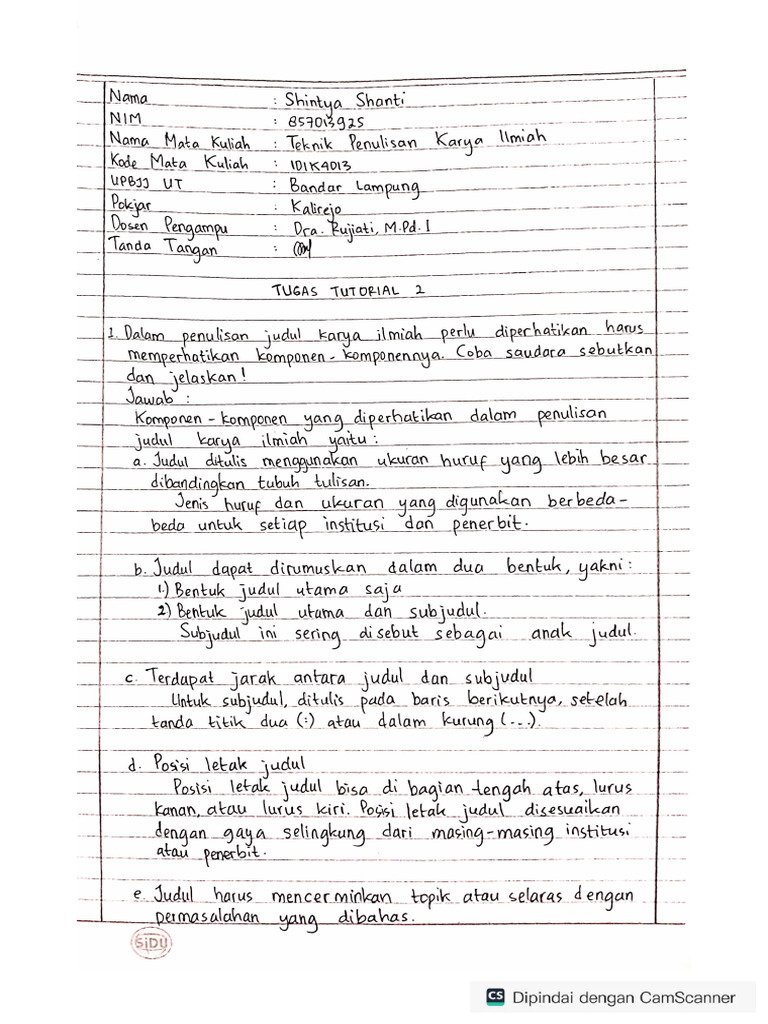 Nama : Shintya Shanti
NIM : 857013925
Nama Mata Kuliah : Teknik Penulisan Karya Ilmiah
Kode Mata Kuliah : IDIK4013
UPBJJ UT : Bandar Lampung
Pokjar : Kalirejo
Dosen Pengampu : Dra. Rujiati, M.Pd.I
Tanda Tangan :
TUGAS TUTORIAL 2
1. Dalam penulisan judul karya ilmiah perlu diperhatikan harus
memperhatikan komponen-komponennya. Coba saudara sebutkan
dan jelaskan!
Jawab :
Komponen-komponen yang diperhatikan dalam penulisan
judul karya ilmiah yaitu :
a. Judul ditulis menggunakan ukuran huruf yang lebih besar
dibandingkan tubuh tulisan.
Jenis huruf dan ukuran yang digunakan berbeda-
beda untuk setiap institusi dan penerbit.
b. Judul dapat dirumuskan dalam dua bentuk, yakni :
1.) Bentuk judul utama saja
2) Bentuk judul utama dan subjudul.
Subjudul ini sering disebut sebagai anak judul.
c. Terdapat jarak antara judul dan subjudul
Untuk subjudul, ditulis pada baris berikutnya, setelah
tanda titik dua (:) atau dalam kurung (...).
d. Posisi letak judul
Posisi letak judul bisa di bagian tengah atas, lurus
kanan, atau lurus kiri. Posisi letak judul disesuaikan
dengan gaya selingkung dari masing-masing institusi
atau penerbit.
e. Judul harus mencerminkan topik atau selaras dengan
permasalahan yang dibahas.
SiDU
CS Dipindai dengan CamScanner